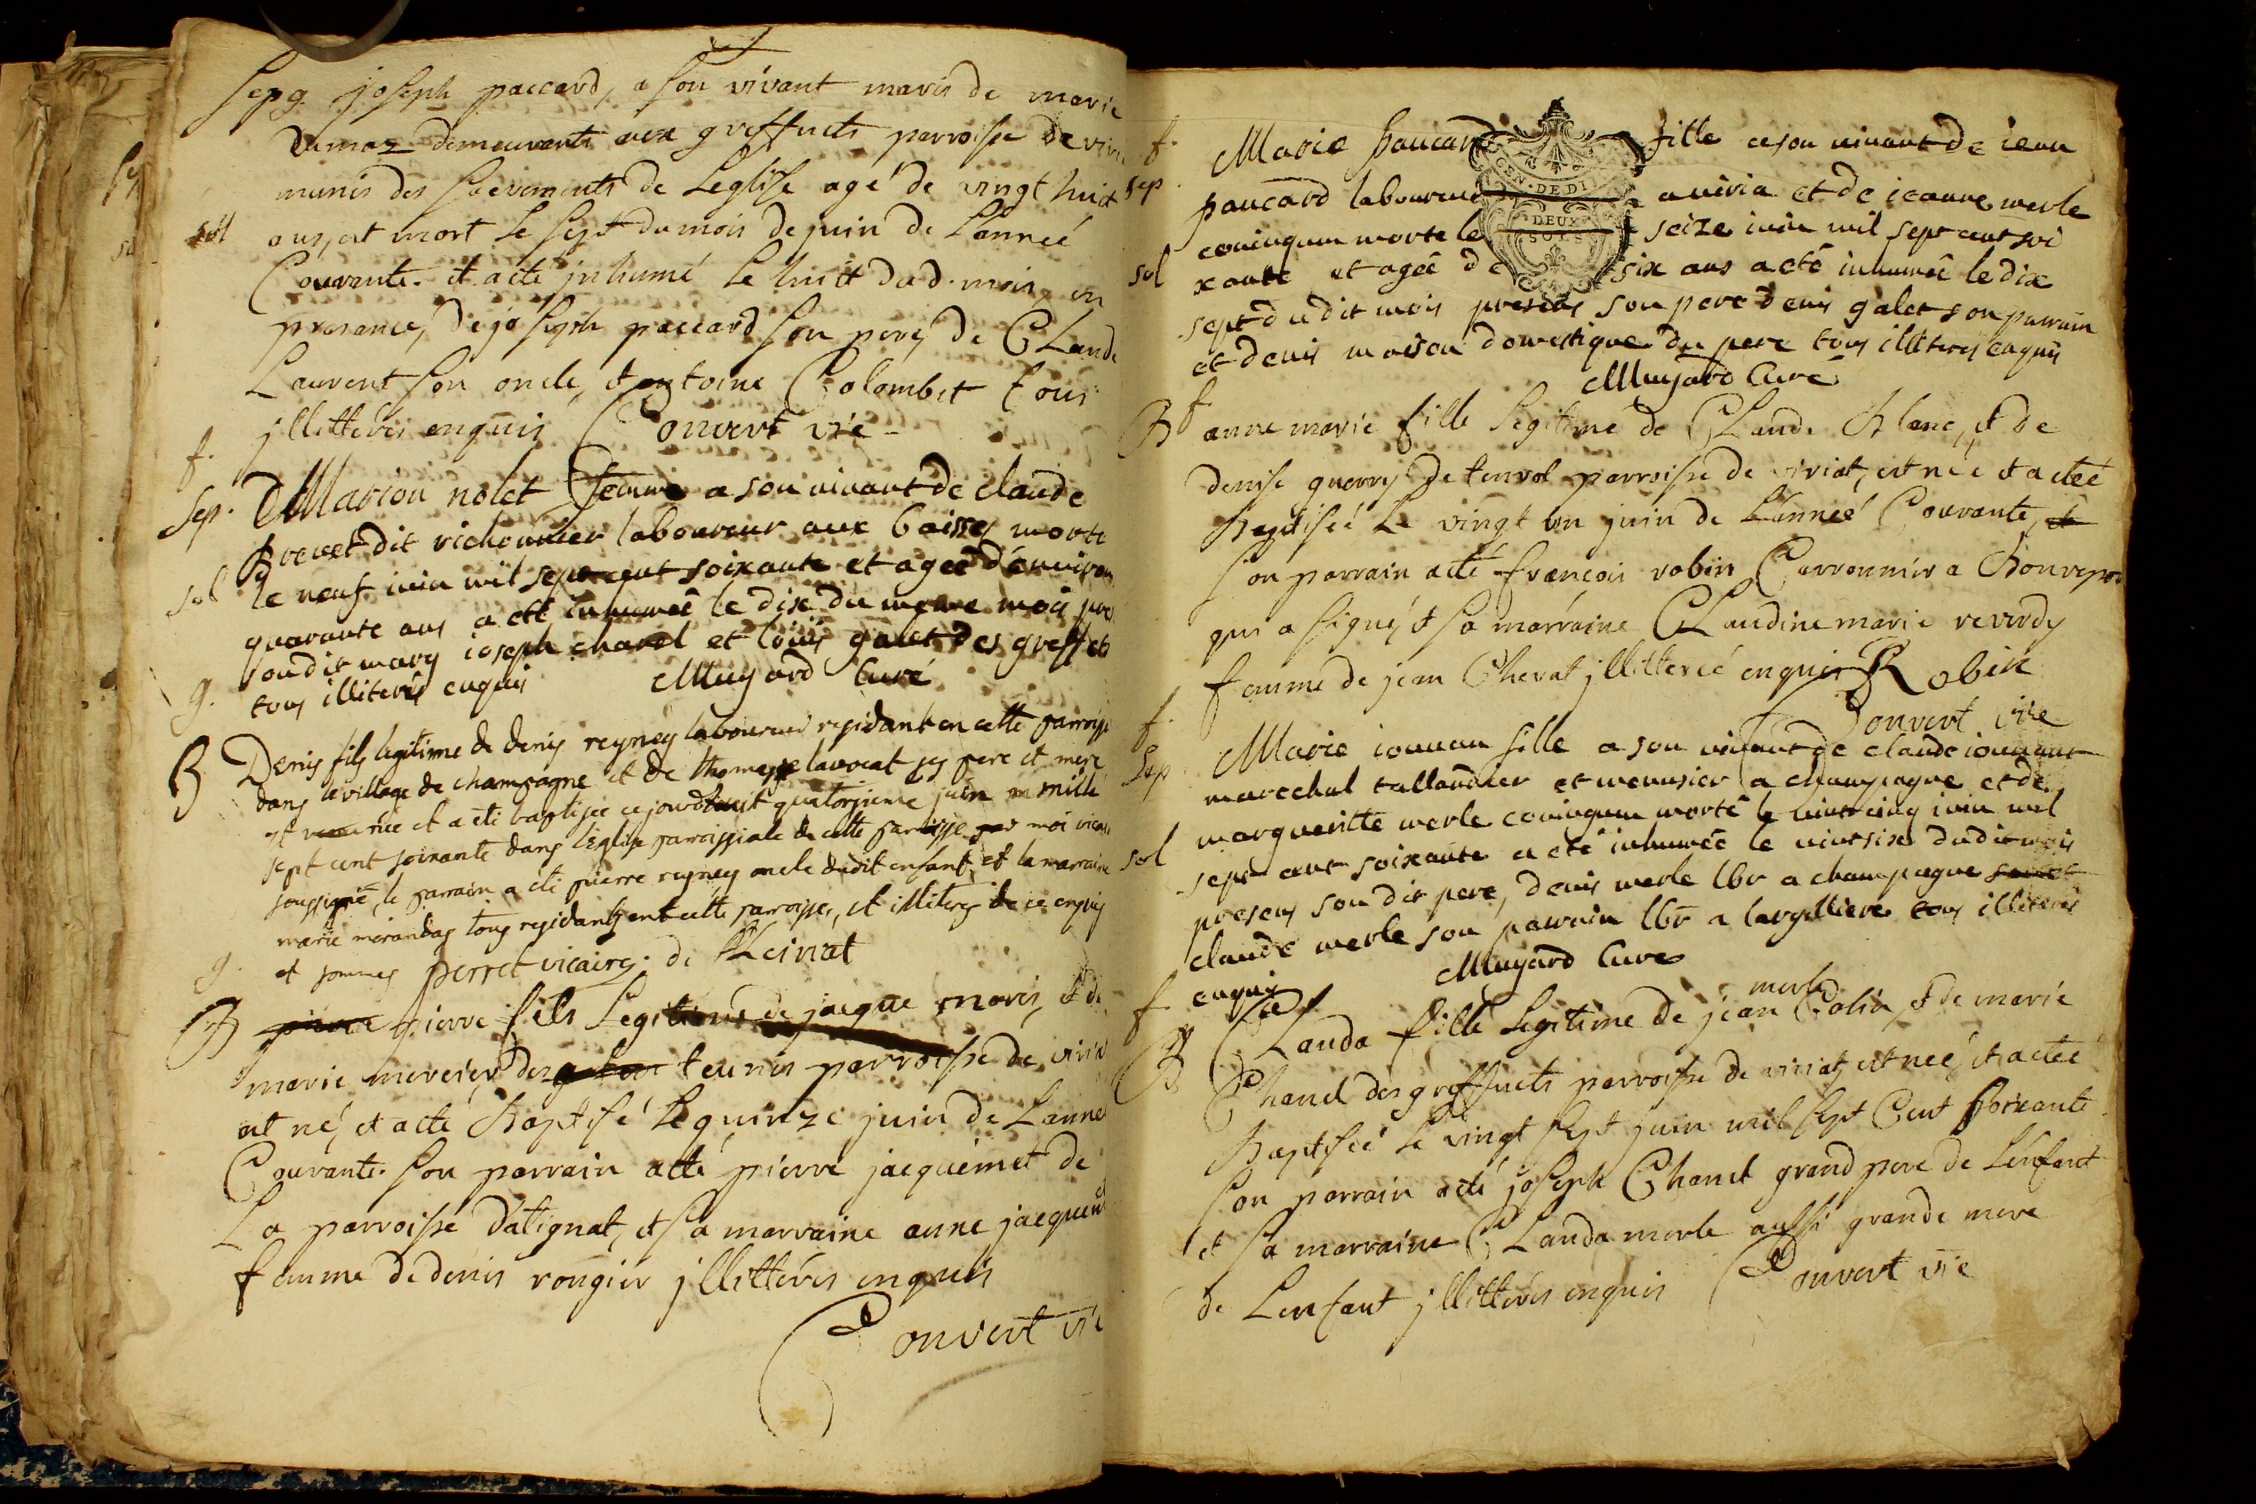 Sep g. joseph paccard, a son vivant maris de marie
Dumaz demeurants aux greffuets parroisse de viria
munis des sacrements de Leglise agé de vingt huit
sol ans, est mort le sept du mois de juin de Lanneé
Courante. et a eté jnhumé le huit dud. mois, en
presance, de joseph paccard son pere, de CLaude
Laurent son oncle, et antoine Colombet tous
jllitterés enquis Convert vie
f.
Sep. Marion nolet femme a son vivant de claude
prevet dit richonnier laboureur aux baisses morte
sol le neuf iuin mil sept cent soixante et ageé d'environ
quarante ans a eté inhumeé le dix du meme mois pre
sondit mary ioseph chanel et loüis galet des greffets
g. tous illiterés enquis Muyard Curé
B Denis fils legitime de denis reyney laboureur residant en cette parroisse
dans le village de champagne et de thomasse lavocat ses pere et mere
est née et a eté baptisée ce jourdhuit quatorzieme juin mille
sept cent soixante dans l'Eglise parroissiale de cette parroisse par moi vicaire
soussigné, le parrain a eté pierre reyney oncle dudit enfant, et la marraine
marie morandas tous residants en cette parroisse, et illiterés de ce enquis
g. et sommes perret vicaire. de
B pierre pierre fils Legitime de jacque maris, et de
marie mercier des teunis parroisse de viria
est né, et a eté Baptisé le quinze juin de Lanneé
Courante. son parrain a eté pierre jacquemet de
La parroisse d'atignat, et sa marraine anne jacquemet
femme de denis rougier jllittérés enquis
Convert vie
f. Marie paucard fille a son vivant de iean
sep. paucard laboureur a viria et de ieanne merle
coniugum morte le seize iuin mil sept cent soi
sol xante et ageé de six ans a eté inhumeé le dix
sept dudit mois presens son pere denis galet son parrain
et denis moisson domestique du pere tous illiterés enquis
Muyard Curé
GEN. DE DI
DEUX
SOLS
f
B anne marie fille Legitime de CLaude Blanc, et de
denise guerry de tenvol parroisse de viriat, est neé et a eteé
Baptiseé Le vingt un juin de Lanneé Courante, et
son parrain a eté françois robin Charronnier a
qui a signé, et sa marraine CLaudine marie reverdy
femme de jean Cherat jllitterée enquis Robin
Convert vie
f.
Sep. Marie iounan fille a son vivant de claude iounan
marechal tallandier et menusier a champagne et de
margueritte merle coniugum morte le vint cinq iuin mil
sol sept cent soixante a eté inhumeé le vint six dudit mois
presens sondit pere, denis merle lbr a champagne
claude merle son parrain lbr a largilliere tous illiterés
enquis Muyard Curé
f
B CLauda fille Legitime de jean merle Colin, et de marie
Chanel des greffuets parroisse de viriat, est neé, et a eteé
Baptiseé Le vingt sept juin mil sept Cent soixante
son parrain a eté joseph Chanel grand pere de Lenfant
et sa marraine CLauda merle aussi grande mere
de Lenfant jllittérés enquis Convert vie